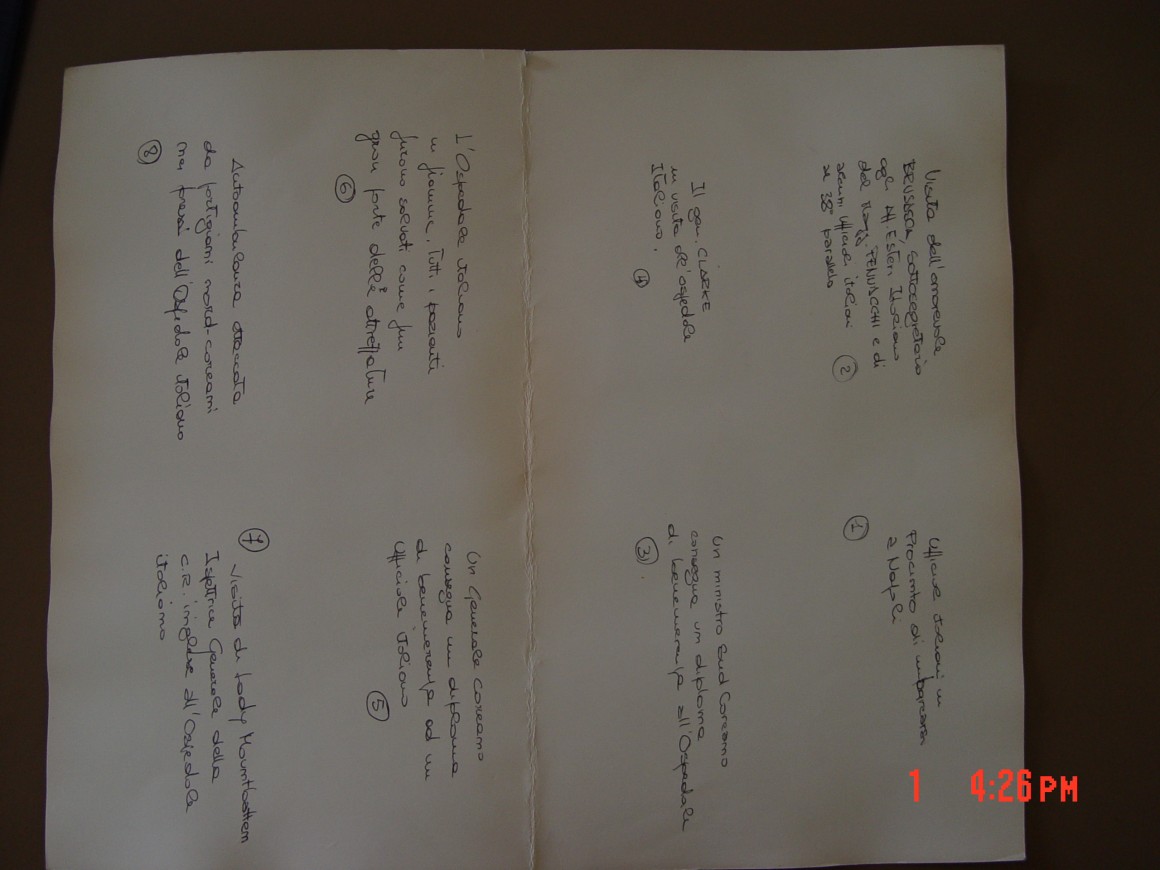 Visita dell'onorevole
BRUSASCA, Sottosegretario
agli Aff. Esteri Italiano
del Magg. PENNACCHI e di
alcuni Ufficiali italiani
al 38° parallelo
2
Ufficiali italiani in
Procinto di imbarcarsi
a Napoli
1
Il gen. CLARKE
in visita all'ospedale
Italiano.
4
Un ministro Sud Coreano
consegna un diploma
di benemerenza all'Ospedale
3).
L'Ospedale italiano
in fiamme. Tutti i pazienti
furono salvati come pure
gran parte delle attrezzature
6
Un Generale coreano
consegna un diploma
di benemerenza ad un
Ufficiale italiano
5
Autoambulanza attaccata
da partigiani nord-coreani
nei pressi dell'Ospedale italiano
8
7
Visita di Lady Mountbattem
Ispettrice Generale della
C.R. inglese all'Ospedale
italiano
1 4:26 PM